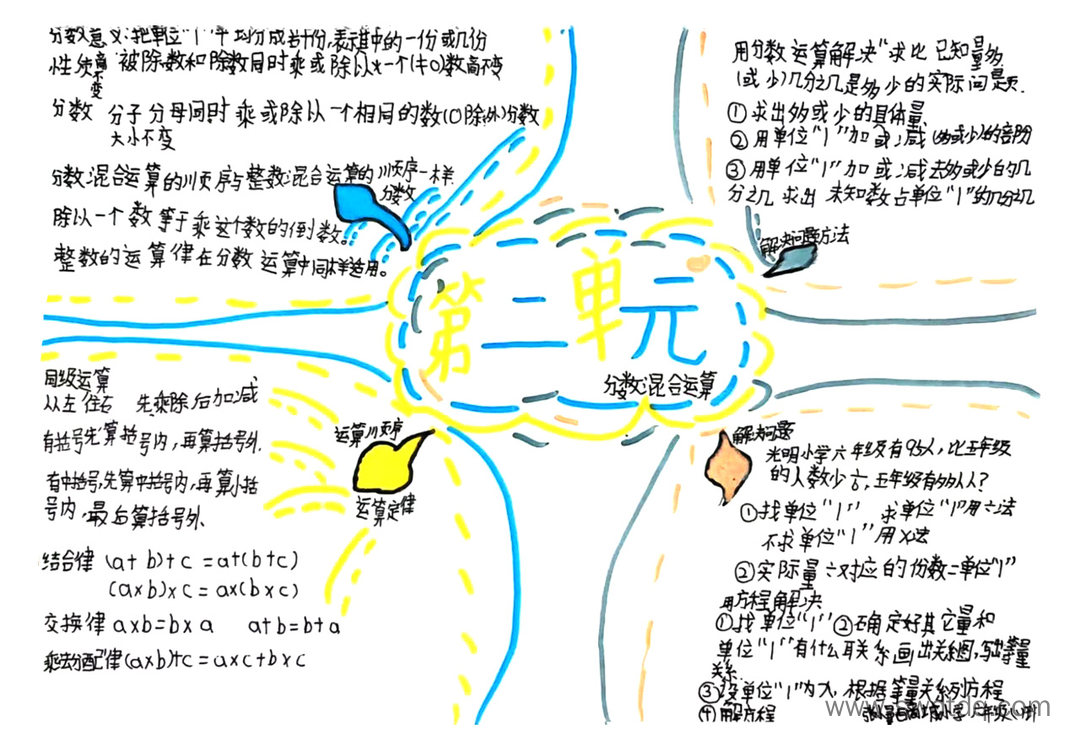 分数意义:把单位"1"平均分成若干份,表示其中的一份或几份
性质 被除数和除数同时乘或除以一个(≠0)数商不变
商不变
分数 分子分母同时乘或除以一个相同的数(0除外)分数
大小不变
分数混合运算的顺序与整数混合运算的顺序一样.
分数
除以一个数等于乘这个数的倒数。
整数的运算律在分数运算中同样适用。
用分数运算解决"求比已知量多
(或少)几分之几是多少的实际问题.
①求出多或少的具体量
②用单位"1"加或减(多或少)的部分
③用单位"1"加或减去多或少的几
分之几 求出 未知数占单位"1"的几分之几
解决问题方法
第二单元
分数混合运算
同级运算
从左往右 先乘除后加减
有括号先算括号内,再算括号外.
有中括号,先算中括号内,再算小括
号内,最后算括号外.
运算顺序
运算定律
结合律 (a+b)+c=a+(b+c)
(a×b)×c=a×(b×c)
交换律 a×b=b×a a+b=b+a
乘法分配律(a×b)+c=a×c+b×c
解决问题
光明小学六年级有95人,比五年级
的人数少 五年级有多少人?
①找单位"1" 求单位"1"用÷法
不求单位"1"用×法
②实际量÷对应的份数=单位"1"
用方程解决
①找单位"1" ②确定好其它量和
单位"1"有什么联系画出关系图,写出等量
关系.
③设单位"1"为x,根据等量关系列方程
④解方程